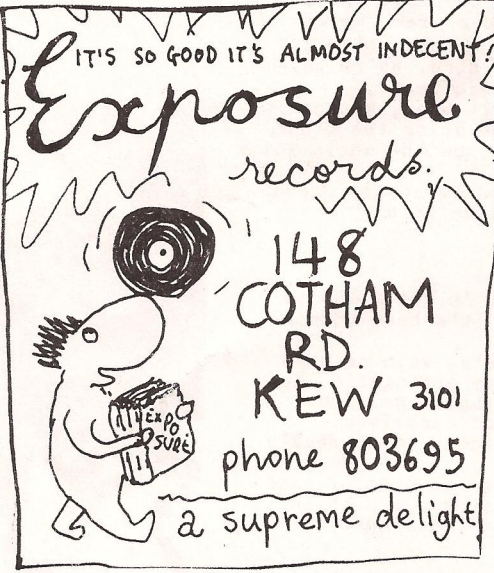 IT'S SO GOOD IT'S ALMOST INDECENT!
Exposure
records.
148
COTHAM
RD.
KEW 3101
EXPO
SURE
phone 803695
a supreme delight